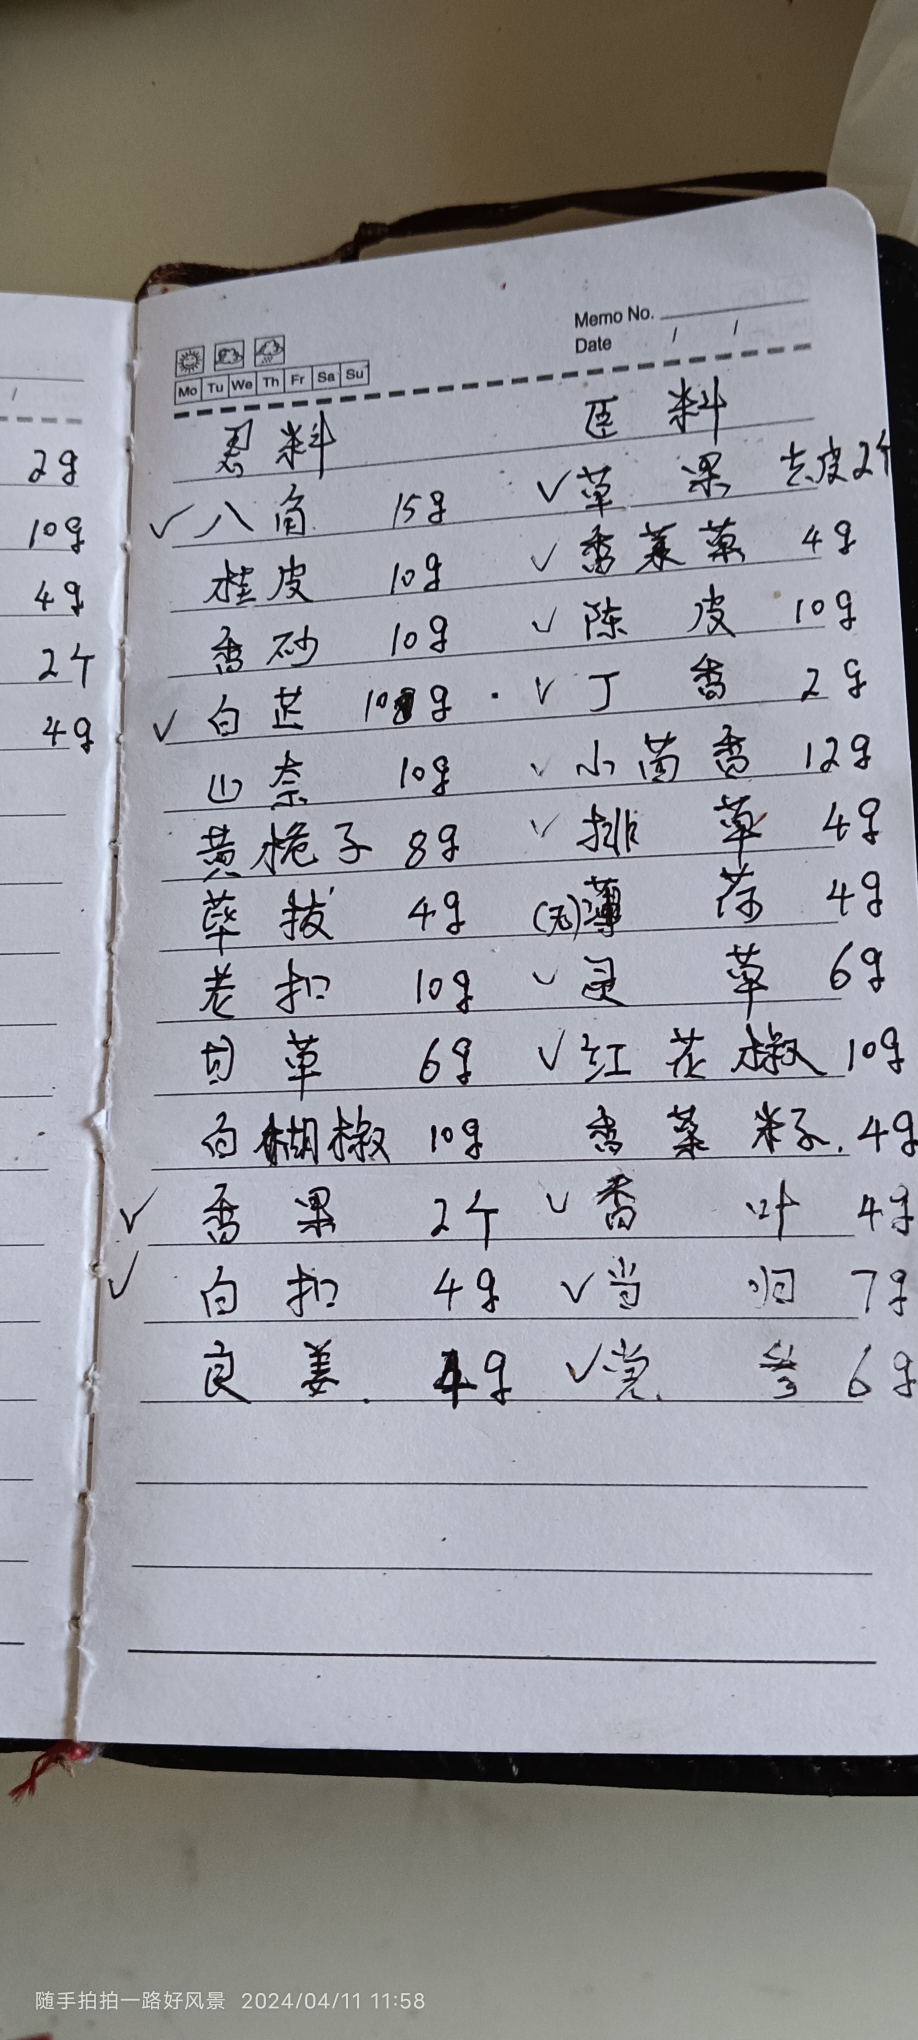 Memo No.
Date / /
Mo Tu We Th Fr Sa Su
料 臣料
✓八角 15g ✓草果 去皮2个
桂皮 10g ✓香茅草 4g
香砂 10g ✓陈皮 10g
✓白芷 10g · ✓丁香 2g
山奈 10g ✓小茴香 12g
黄栀子 8g ✓排草 4g
荜拔 4g (无)薄荷 4g
老扣 10g ✓灵草 6g
甘草 6g ✓红花椒 10g
白胡椒 10g 香菜籽. 4g
✓香果 2个 ✓香叶 4g
✓白扣 4g ✓当归 7g
良姜. 4g ✓党参 6g
/
2g
10g
4g
2个
4g
随手拍拍一路好风景 2024/04/11 11:58